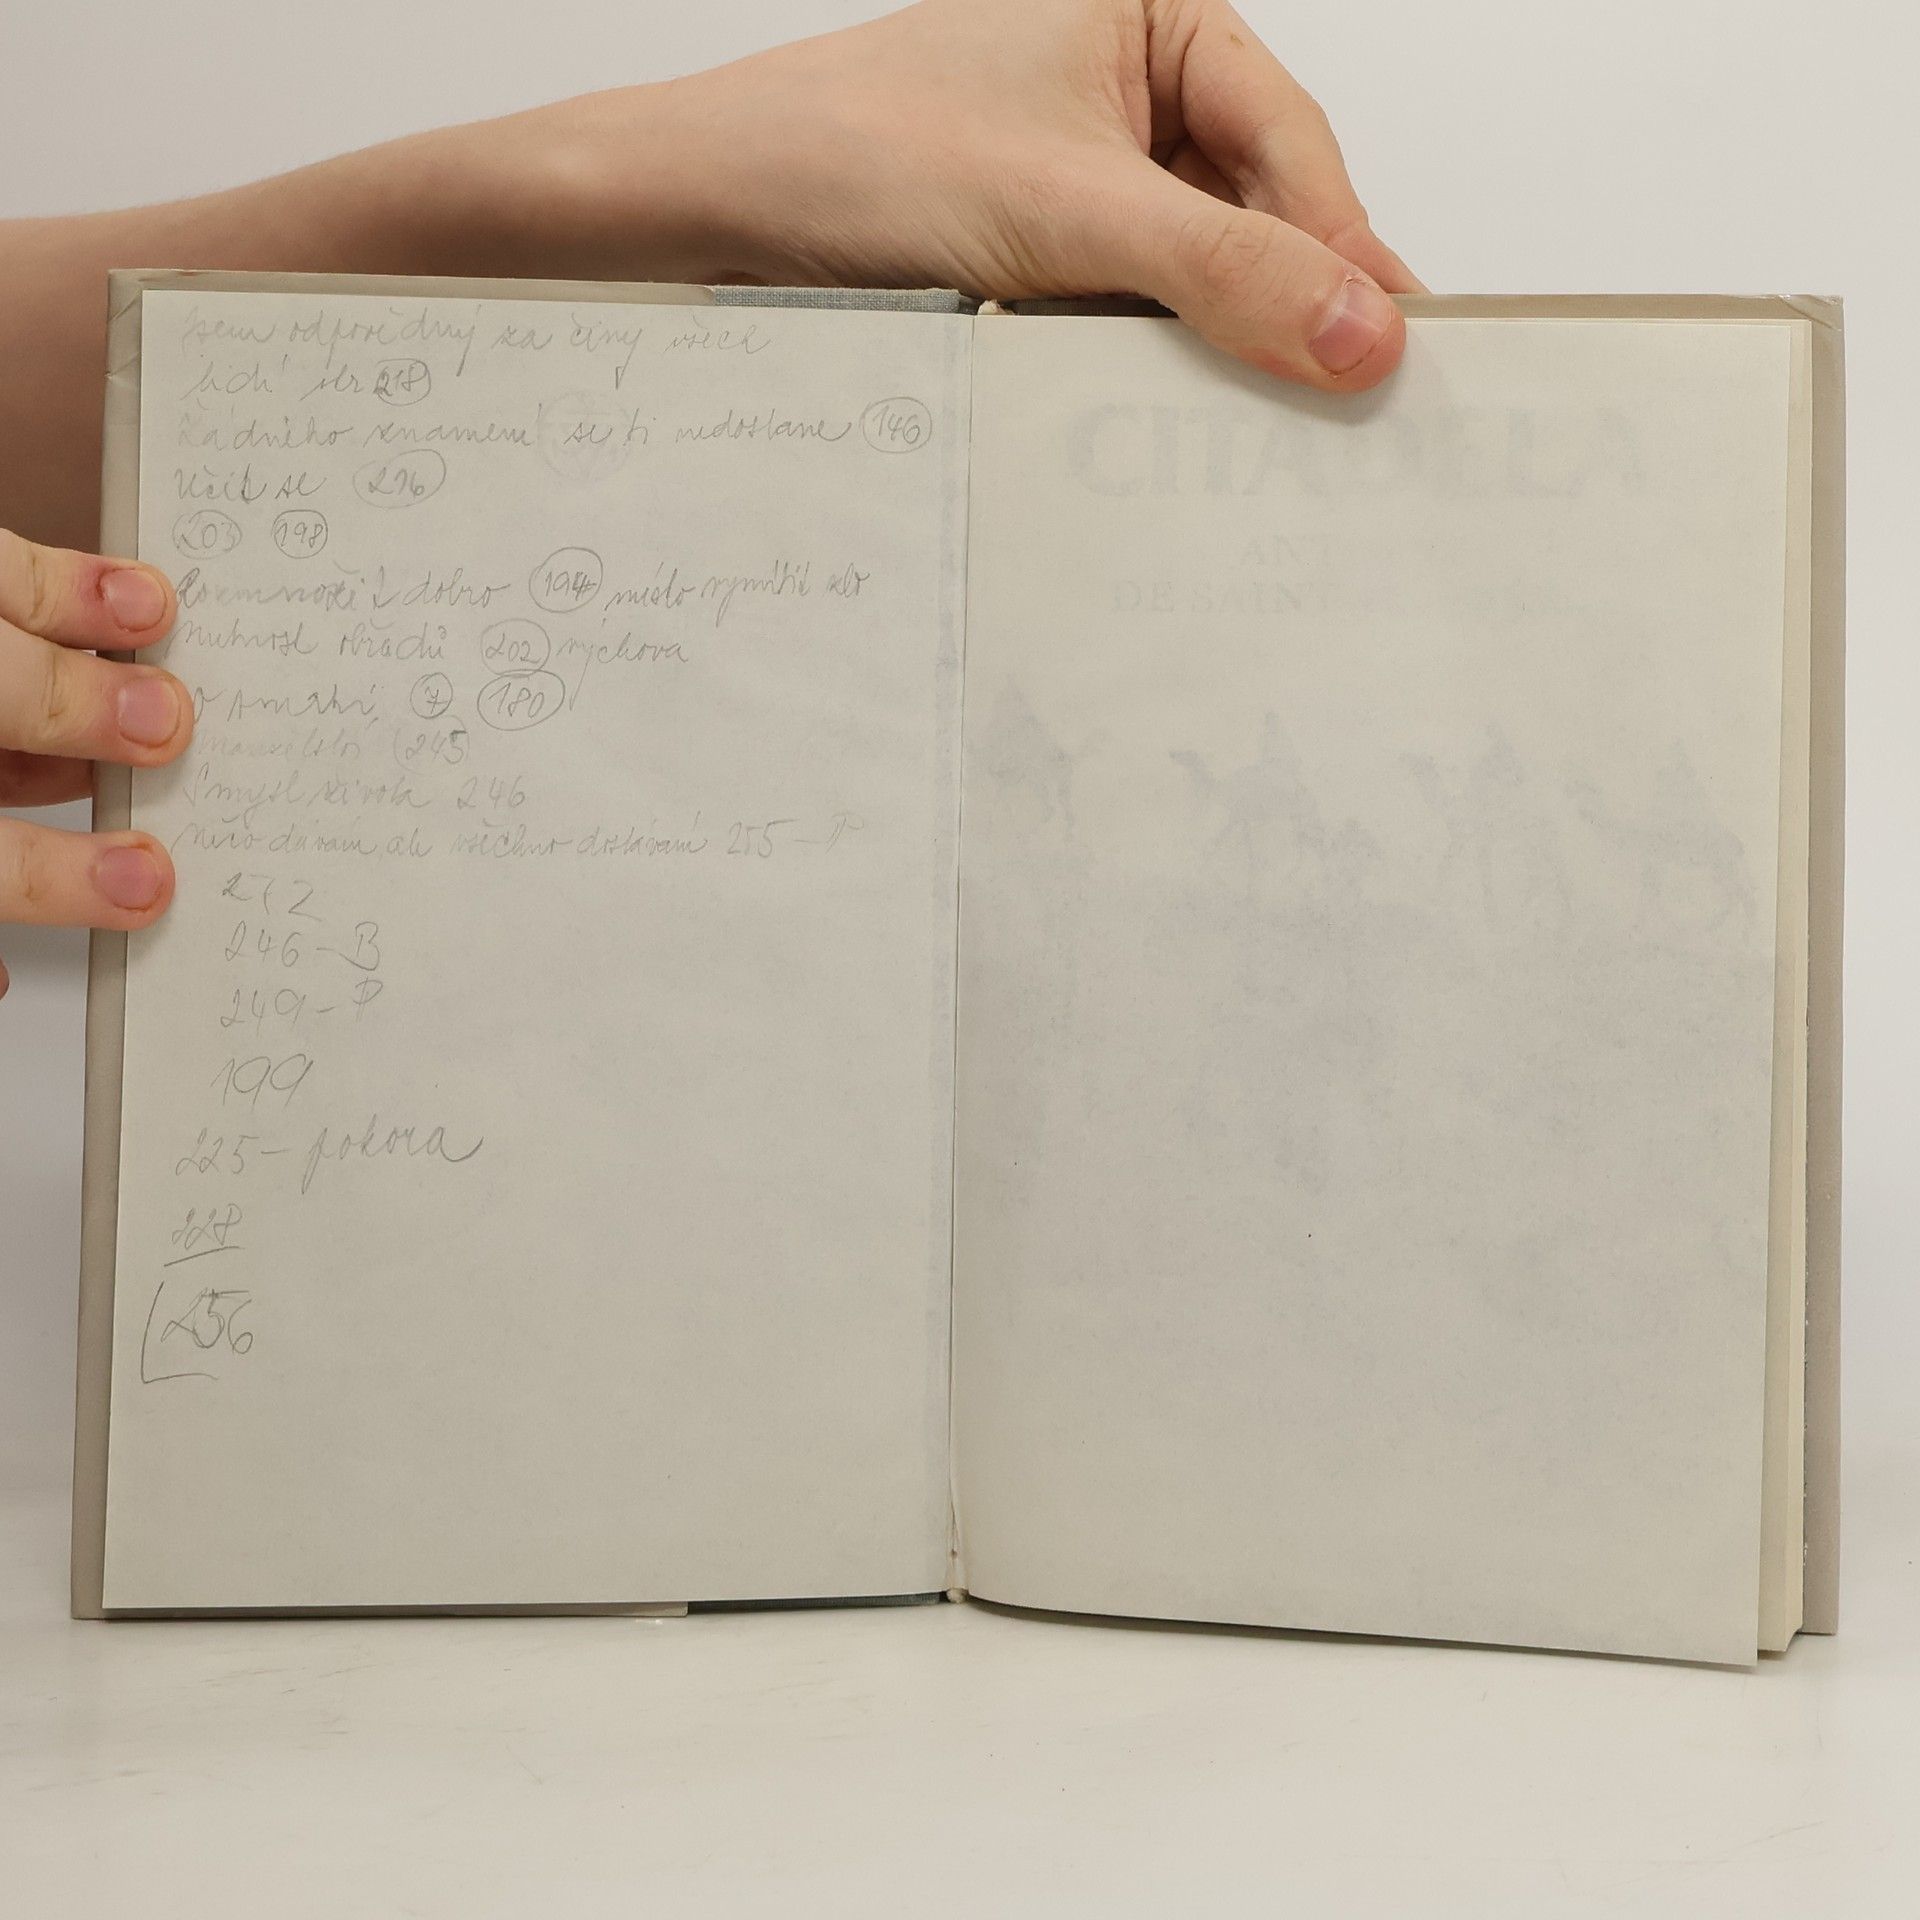 Jsem odpovědný za činy všech
lidí str 218
Žádného znamení se ti nedostane 146
Učit se 216
203 198
Rozmnožit dobro 194 místo vymítit zlo
Nutnost obřadů 202 výchova
O smrti 7 180
manželství 245
Smysl života 246
Něco dávám, ale všechno dostávám 255 – P
272
246 – B
249 – P
199
225 – pokora
228
256
CITADELA
DE SAINT